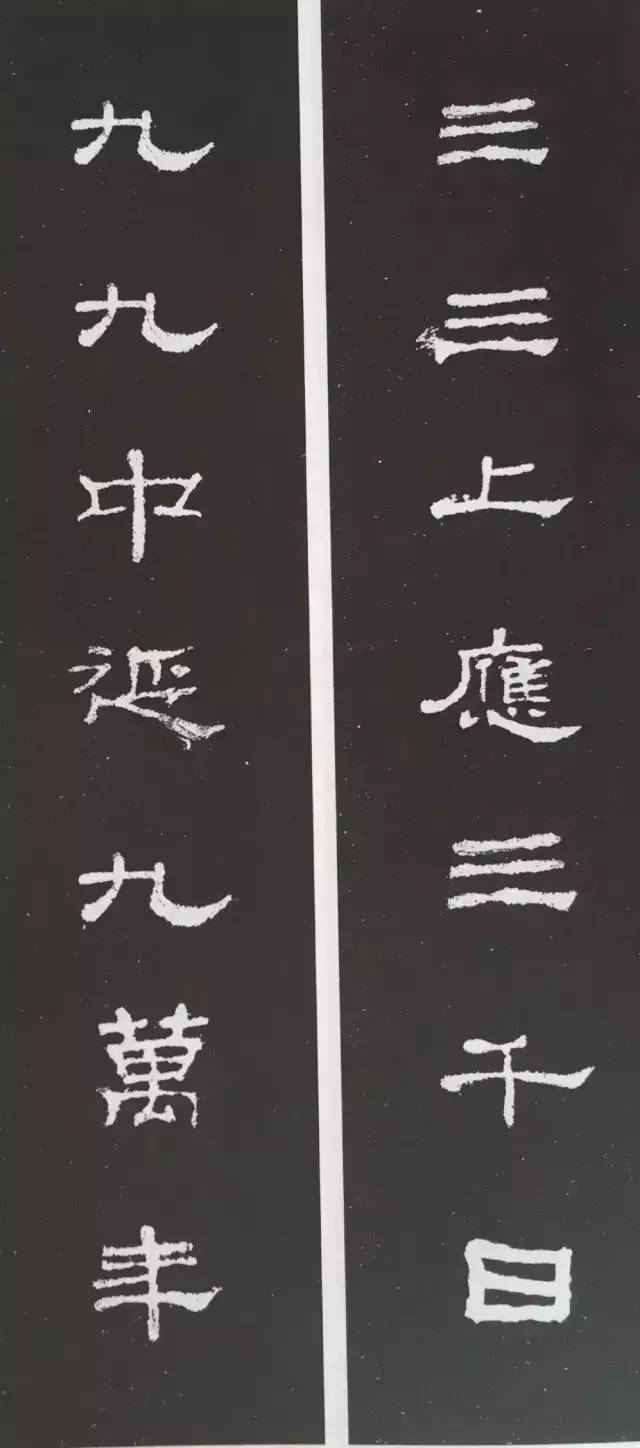 三三上應三千日
九九中延九萬年